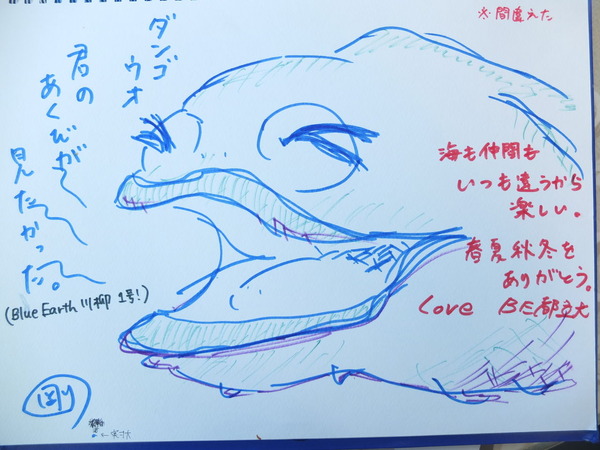 ※間違えた
ダンゴ
ウオ
君の
あくびが〜
見た〜
かった〜。
(Blue Earth 川柳 1号!)
剛
海も仲間も
いつも違うから
楽しい。
春夏秋冬を
ありがとう。
Love BE都立大